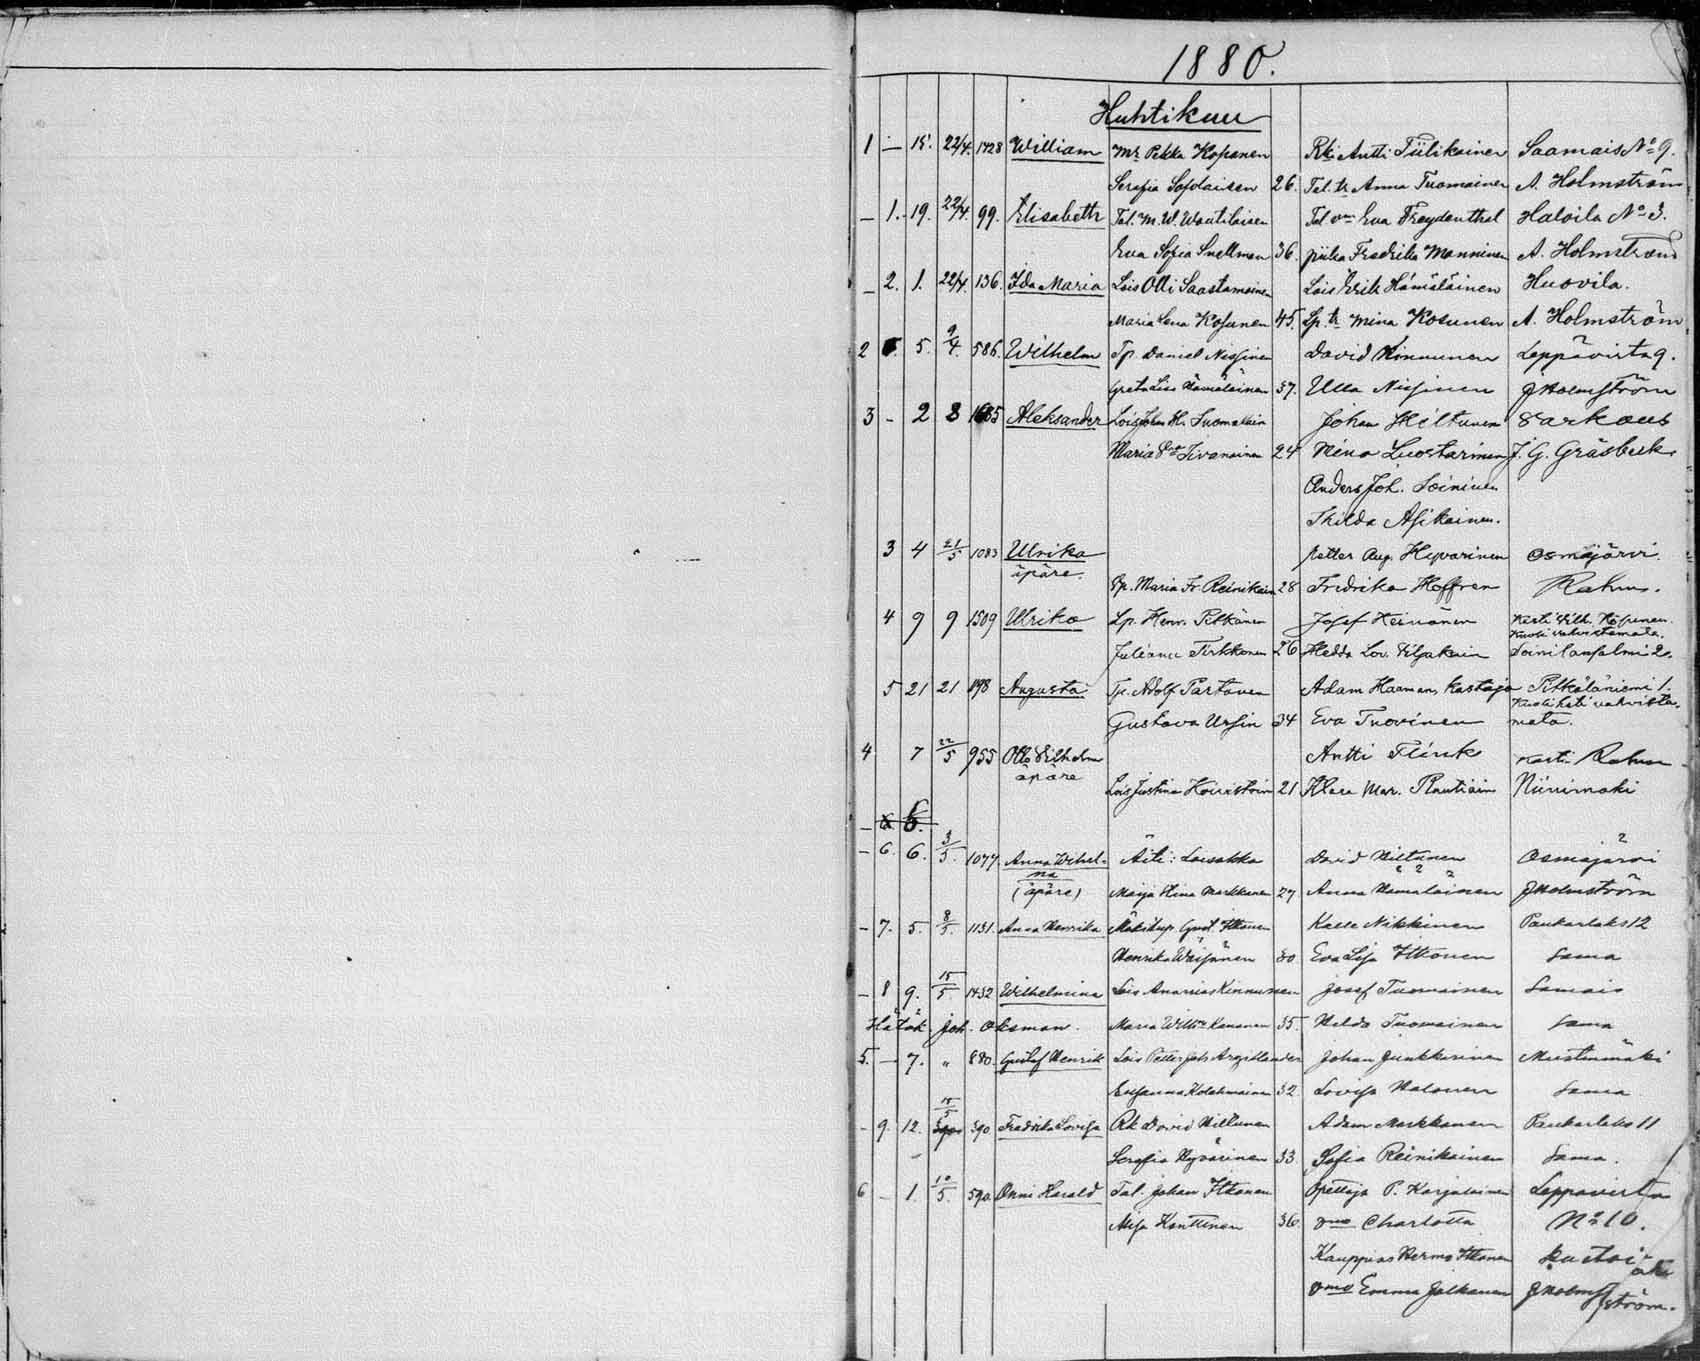 1880.
Huhtikuu
1 — 15. 22/4. 1428 William Mr. Pekka Kosanen Rki Antti Tiilikainen Saamais No 9.
Serafia 26. Tal. tr Anna Tuomainen A. Holmström
— 1. 19. 22/4 99. Elisabeth Tal. m. W. Woutilaisen Tal vmo Eva Freydenthal Haloila No 3.
Eva Sofia Snellman 36. piika Fredrika Manninen A. Holmström
— 2. 1. 22/4. 136. Ida Maria Lois Olli Saastamoinen Lois Erik Hämäläinen Huovila.
Maria Lena Kosunen 45. Lp. tr Mina Kosunen A. Holmström
2 5. 9/4. 586. Wilhelm Tp. Daniel Nissinen David Kinnunen Leppävirta 9.
Greta Lisa Hämäläinen 37. Ulla Nissinen J Holmström
3 - 2 8 1685 Aleksander Lois Johan H. Suomalain Johan Hiltunen Varkaus
Maria 24 Nina Luostarinen J. G. Gräsbeck
Anders Joh. Soininen
Thilda Asikainen.
3 4 21/5 1083 Ulrika Petter Aug. Hyvärinen Osmajärvi
äpäre. Lp. Maria Fr Reinikain 28 Fredrika Hoffren Rahm.
4 9 9 1509 Ulrika Lp. Henr. Pitkänen Josef Keinänen Kasti Vilh. Kosunen.
Kuoli vahvistamata.
Juliana Tirkkonen 26 Hedda Lov. Viljakain Soinilansalmi 2.
5 21 21 198 Augusta Tp. Adolf Partanen Adam Haaman, kastaja Pitkälänniemi 1.
Kuoli heti vahvista-
Gustava Ursin 34 Eva Tuovinen mata.
4 7 22/5 955 Otto Vilhelm Antti Flink Kasti Rahm
äpäre Lois Justina 21 Klara Mar. Rautiain Niinimäki
— 6. 6.
— 6. 6. 3/5. 1077. Anna Wilhel- Äiti: Loisakka David Hiltunen Osmajärvi 2
na
(äpäre) Maija Stina Markkanen 27 Anna Hämäläinen J Holmström
— 7. 5. 8/5. 1131. Anna Henrika Mäkitup. Gust. Itkonen Kalle Nikkinen Paukarlaks 12
Henrika Wäisänen 30 Eva Lisa Itkonen Sama
— 8 9. 15/5 1432 Wilhelmina Lois Ananias Kinnunen Josef Tuomainen Samais
Hätäk. Joh. Oksman. Maria Wilh:a Kananen 35. Hilda Tuomainen Sama
5. — 7. " 880. Gustaf Henrik Lois Petter Joh. Argillander Johan Junkkarinen Mustinmäki
Eva Sanna Kolehmainen 32 Lovisa Halonen Sama
- 9. 12. 15/5 390 Fredrika Lovisa Rk David Hiltunen Adam Markkanen Paukarlaks 11
Serafia Hyvärinen 33. Sofia Reinikainen Sama.
6 - 1. 10/5. 590. Onni Harald Tal. Johan Itkonen Opettaja P. Karjalainen Leppävirta
Miija Konttinen 36. vmo Charlotta No 10.
Kauppias Herms Itkonen Kastoi
vmo Emma Jalkanen J Holm-
ström.